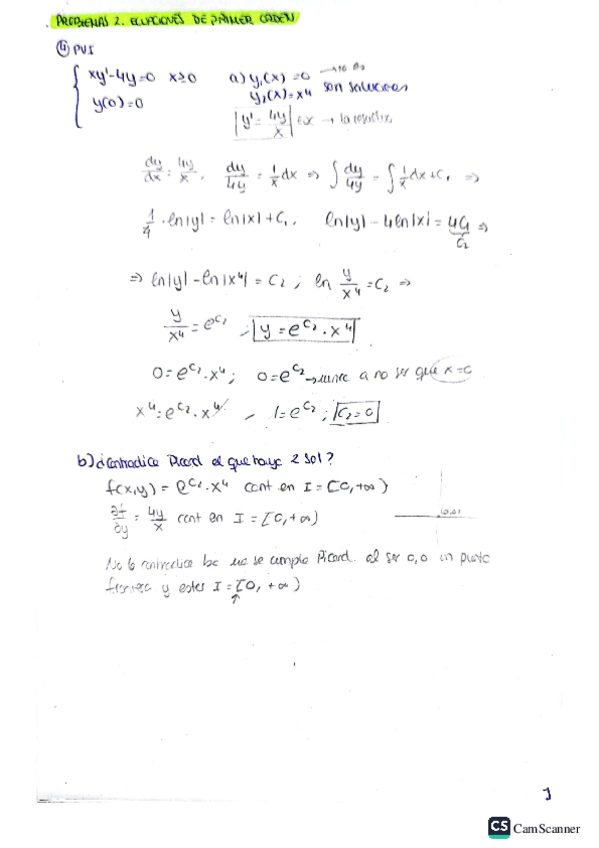 PROBLEMAS 2. ECUACIONES DE PRIMER ORDEN
④ PVI
xy'-4y=0 x≥0 a) y₁(x) =0
y(0)=0 y₂(x)=x⁴ son soluciones
|y' = 4y/x| → la
dy/dx = 4y/x . dy/4y = 1/x dx ⇒ ∫ dy/4y = ∫ 1/x dx + C₁ ⇒
1/4 · ln|y| = ln|x| + C₁. ln|y| - 4ln|x| = 4C₁ ⇒
C₂
⇒ ln|y| - ln|x⁴| = C₂ ; ln y/x⁴ = C₂ ⇒
y/x⁴ = e^C₂ ; y = e^C₂ · x⁴
0 = e^C₂ · x⁴ ; 0 = e^C₂ → nunca a no ser que x=0
x⁴ = e^C₂ · x⁴ 1 = e^C₂ ; C₂=0
b) ¿Contradice Picard el que haya 2 sol?
f(x,y) = e^C₂ · x⁴ cont en I = [0, +∞)
∂f/∂y = 4y/x cont en I = [0, +∞)
(0,0)
No lo contradice no se cumple Picard al ser 0,0 un punto
frontera y I = [0, +∞)
↑
1
CS CamScanner